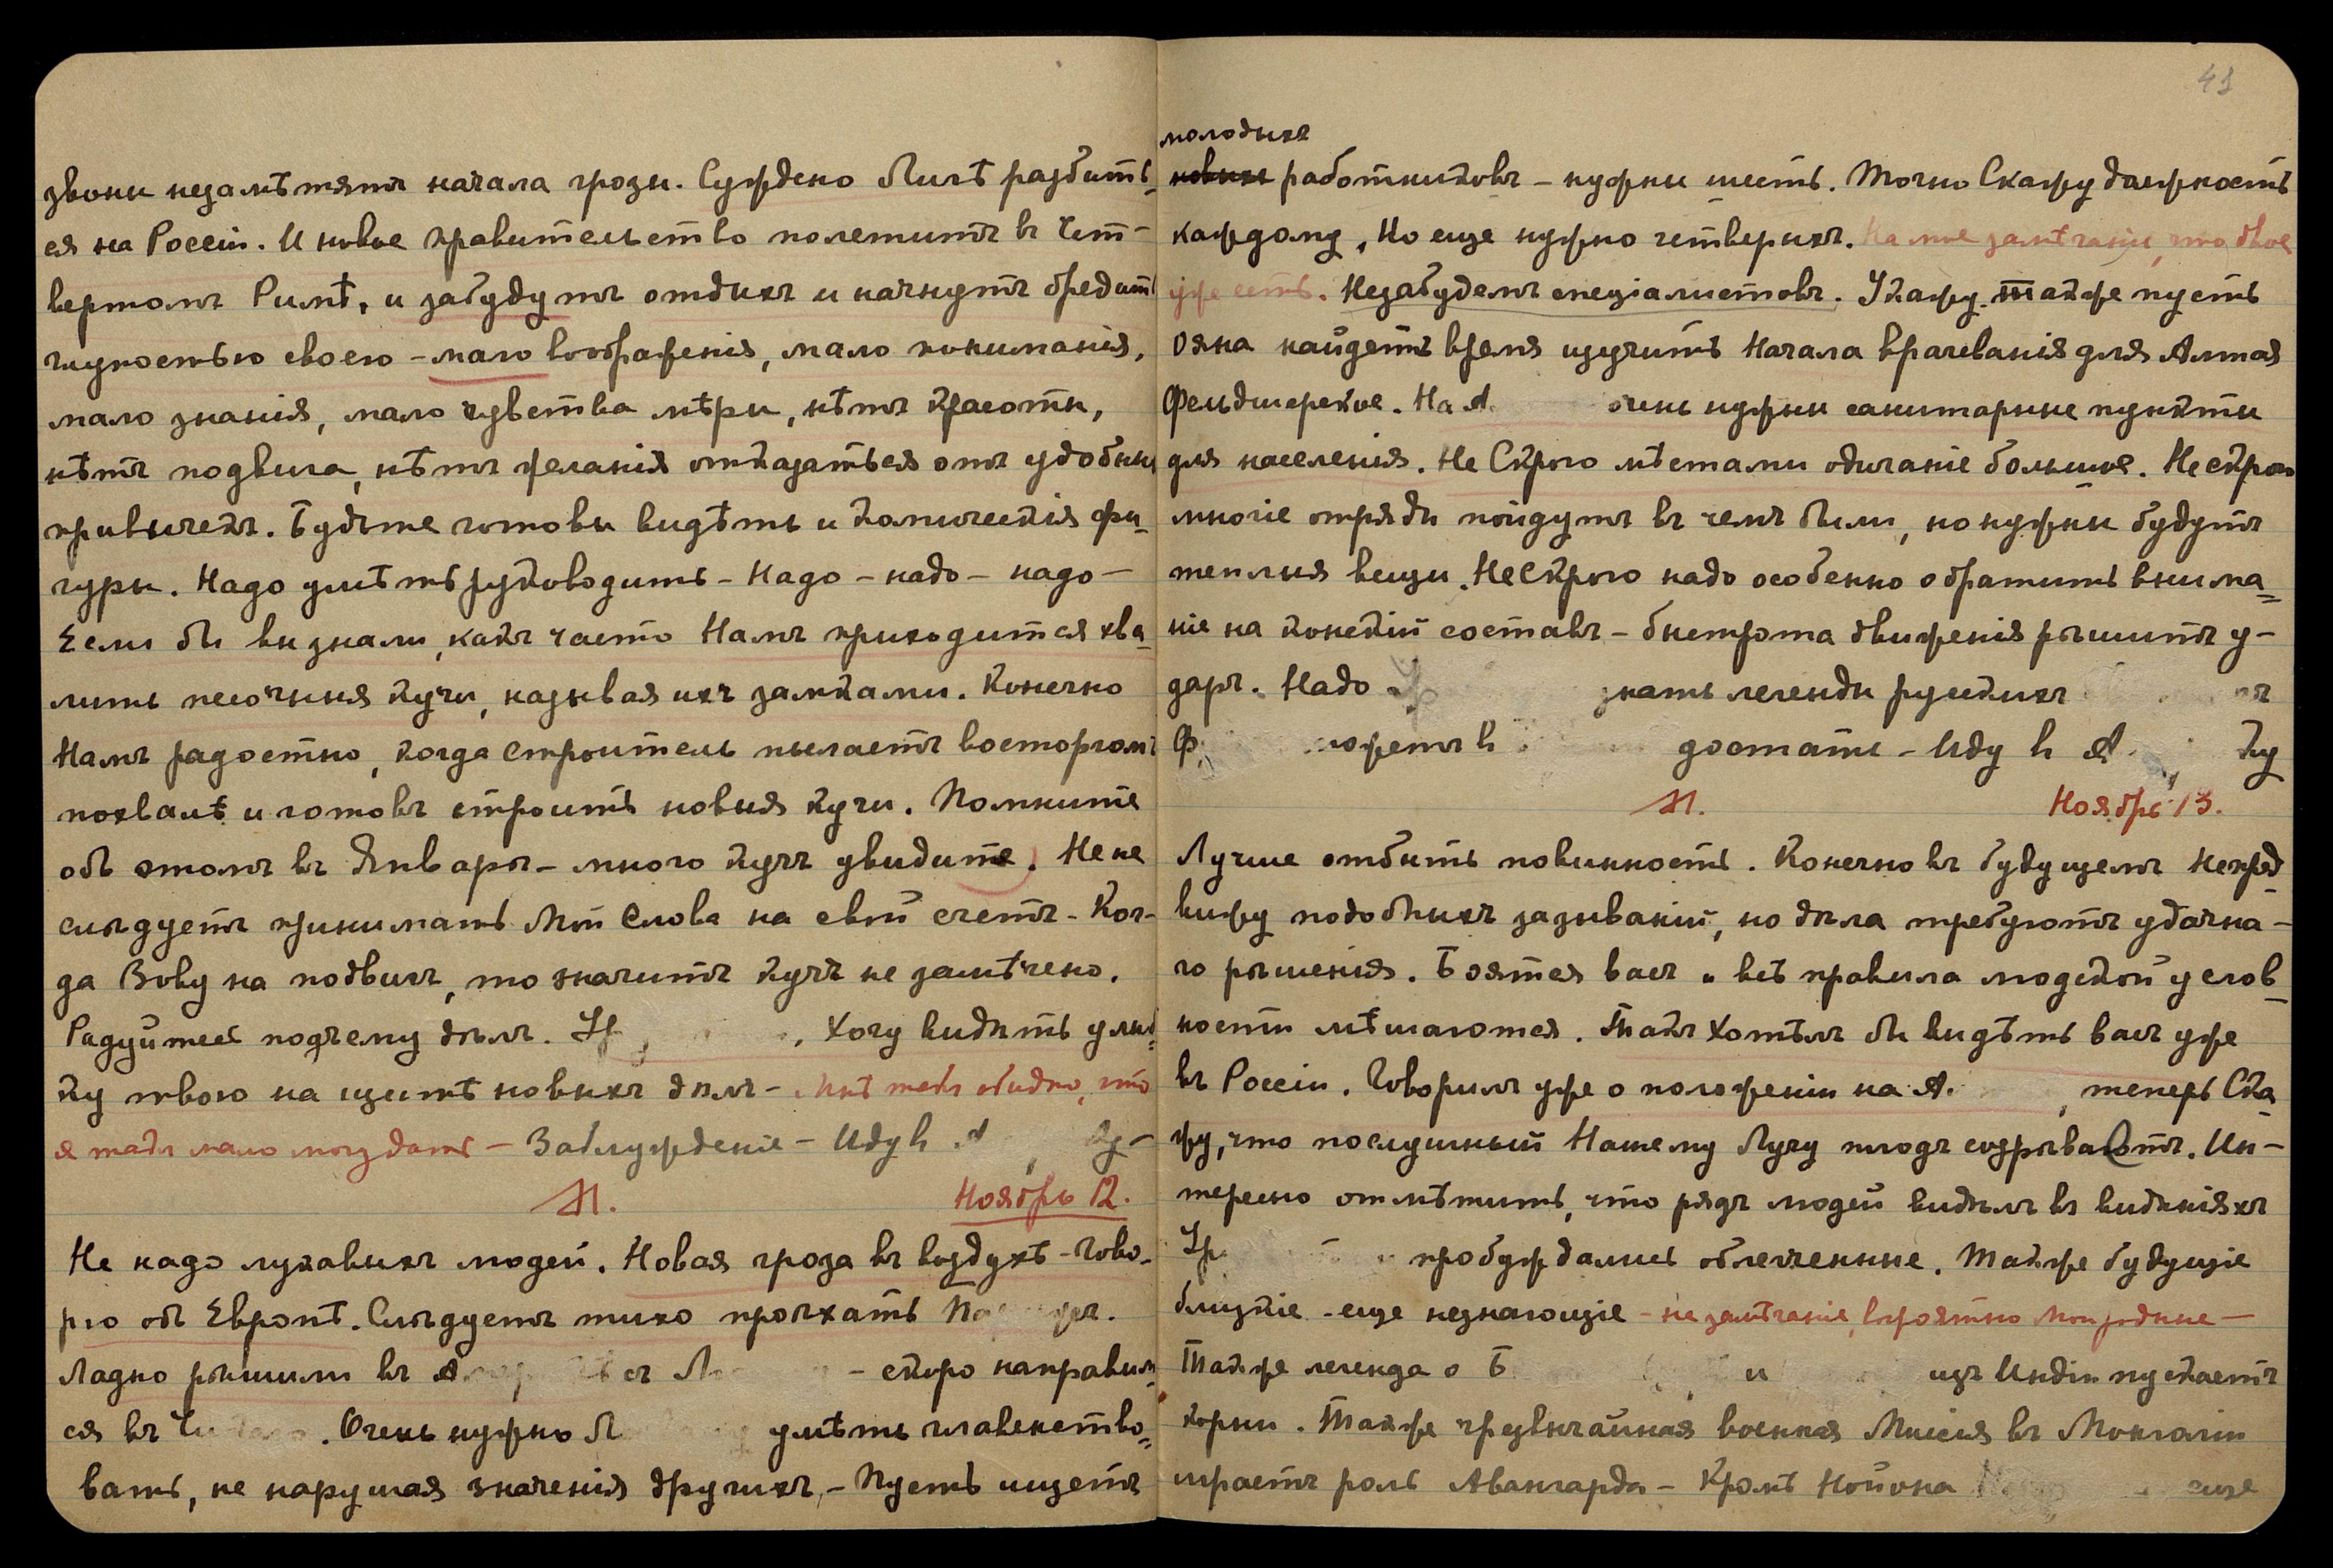 звоны незамѣтятъ начала грозы. Суждено Лигѣ разбить-
ся на Россіи. И новое правительство полетитъ въ Чет-
вертомъ Римѣ, и забудутъ отдыхъ и начнутъ бредить
глупостью своею - мало воображенія, мало пониманія,
мало знанія, мало чувства мѣры, нѣтъ красоты,
нѣтъ подвига, нѣтъ желанія отказаться отъ удобны
привычекъ. Будьте готовы видѣть и комическія фи-
гуры. Надо умѣть руководить - Надо - надо - надо -
Если бы вы знали, какъ часто Намъ приходится хва-
лить песочныя кучи, называя ихъ замками. Конечно
Намъ радостно, когда строитель пылаетъ восторгомъ
похвалѣ и готовъ строить новыя кучи. Помните
объ этомъ въ Январѣ - много кучъ увидите. Не не
слѣдуетъ принимать Мои Слова на свой счетъ - Ког-
да Зову на подвигъ, то значитъ кучъ не замѣчено.
Радуйтесь подъему дѣлъ. Ур , Хочу видѣть улыб-
ку твою на щитѣ новыхъ дѣлъ - Мнѣ такъ обидно, что
я такъ мало могу дать - Заблужденіе - Иду h А ку -
М. Ноябрь 12.
Не надо лукавыхъ людей. Новая гроза въ воздухѣ - Гово-
рю объ Европѣ. Слѣдуетъ тихо проѣхать
Ладно рѣшили въ А съ Л - скоро направим
ся въ Чи . Очень нужно Л умѣть главенство-
вать, не нарушая значенія другихъ, - Пусть ищетъ
41
молодыхъ
новыхъ работниковъ - нужны шесть. Точно Скажу даже
каждому. Но еще нужно четверыхъ. На мое замѣчаніе, что двое
уже есть. Незабудемъ спеціалистовъ. Укажу. Также пусть
Ояна найдетъ время изучить Начала врачеванія для Алтая
Фельдшерское. На А. очень нужны санитарные пункты
для населенія. Не Скрою мѣстами одичаніе большое. Не скрою
многіе отряды пойдутъ въ чемъ были, но нужны будутъ
теплыя вещи. Не Скрою надо особенно обратить внима-
ніе на конскій составъ - быстрота движенія рѣшитъ у-
даръ. Надо Ур знать легенды русскихъ
Ф. можетъ h достать - Иду h А ку
М. Ноябрь 13.
Лучше отбыть повинность. Конечно въ будущемъ Непред-
вижу подобныхъ зазываній, но дѣла требуютъ удачна-
го рѣшенія. Боятся васъ и всѣ правила людской услов-
ности мѣшаются. Такъ Хотѣлъ бы видѣть васъ уже
въ Россіи. Говорилъ уже о положеніи на А. , теперь Ска-
жу, что послушный Нашему Лучу плодъ созрѣваетъ. Ин-
тересно отмѣтить, что рядъ людей видѣлъ въ видѣніяхъ
Ур пробуждались облегченные. Также будущіе
близкіе - еще незнающіе - не замѣчаніе, вѣроятно мои родные -
Также легенда о Б и изъ Индіи пускаетъ
корни. Также чрезвычайная военная Миссія въ Монголіи
играетъ роль Авангарда - Кромѣ Нойона еще